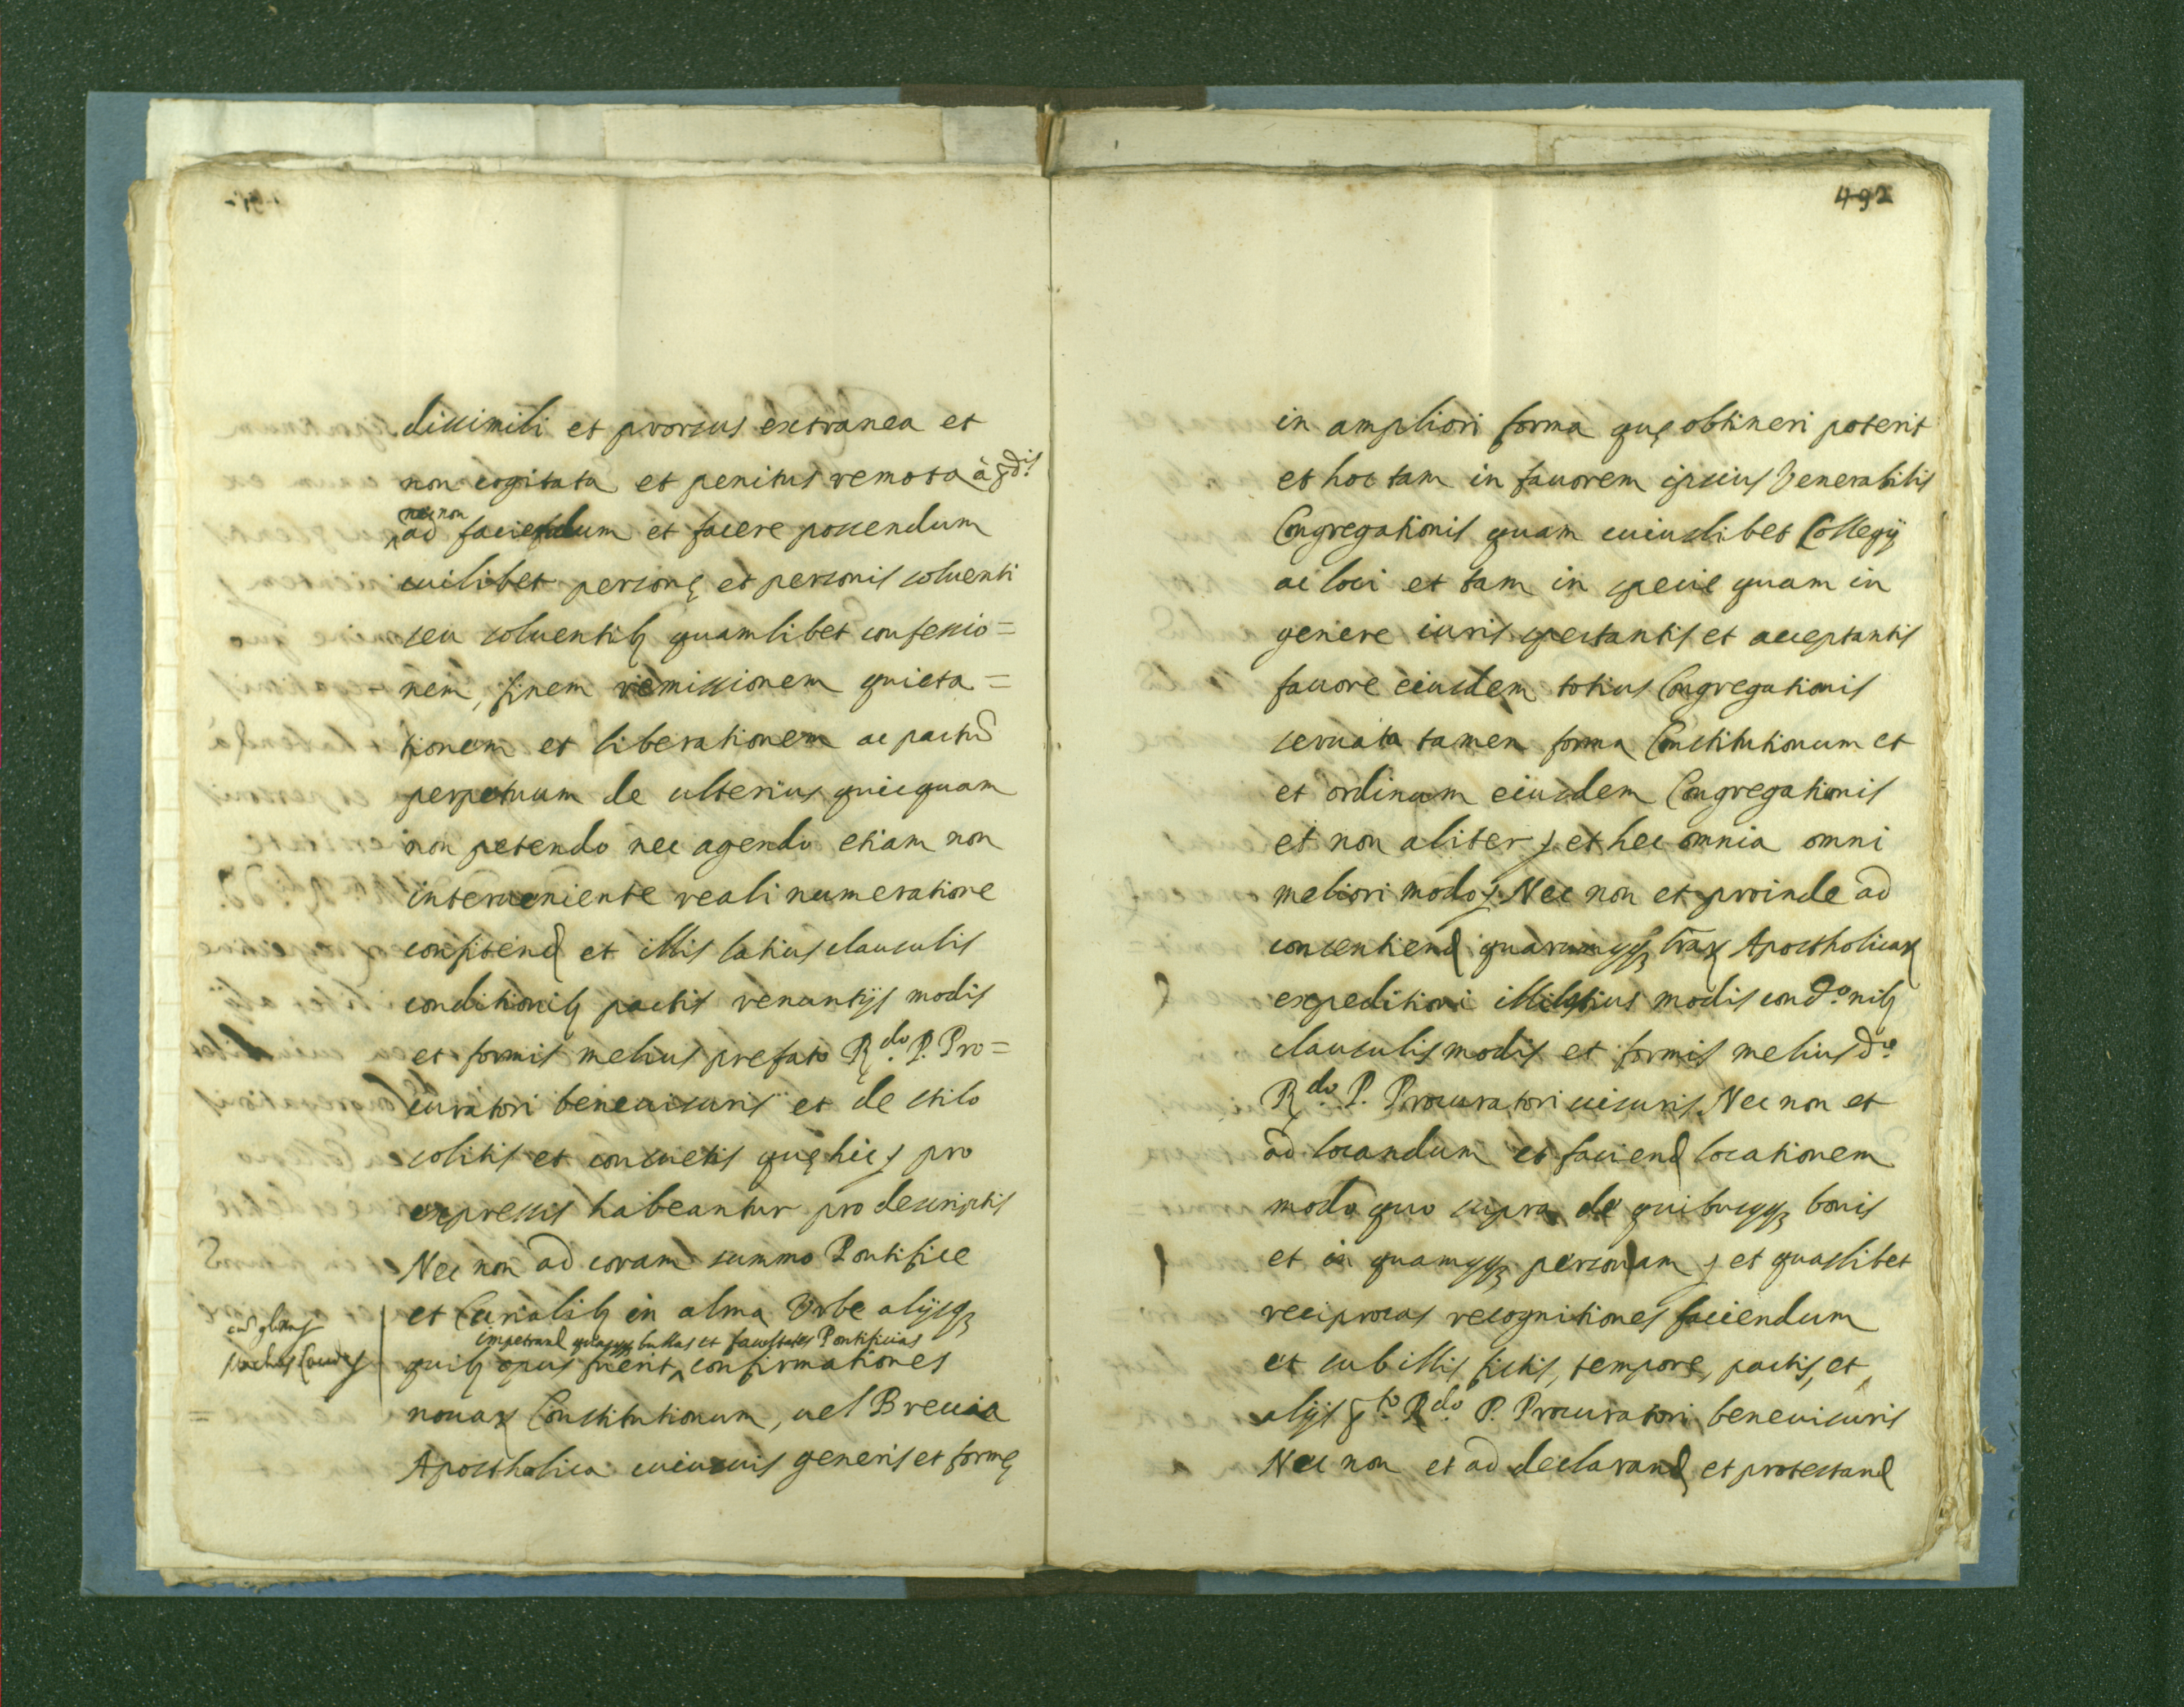 dissimili et prorsus extranea et
non cogitata et penitus remota à p.dis
nec non
ad faciendum et facere possendum
cuilibet personę et personis soluenti
seu soluentib quamlibet confessio=
nem, finem remissionem quieta=
tionem et liberationem ac pactū
perpetuum de ulterius quicquam
non petendo nec agendo etiam non
interueniente reali numeratione
confitend et illis latius clausulis
conditionib pactis renuntijs modis
et formis melius prefato R.do P. Pro=
curatori beneuisuris et de stilo
solitis et consuetis quę hic pro
expressis habeantur pro descriptis
Nec non ad coram summo Pontifice
et Curialib in alma Vrbe alijsq
impetrand quasqq bullas et facultates Pontificias
quib opus fuerit, confirmationes
nouar Constitutionum, uel Breuia
Apostholica cuiusuis generis et formę
492
in ampliori forma quę obtineri poterit
et hoc tam in fauorem ipsius Venerabilis
Congregationis quam cuiuslibet Collegij
ac loci et tam in specie quam in
genere iuris spectantis et acceptantis
fauore eiusdem totius Congregationis
seruata tamen forma Constitutionum et
et ordinum eiusdem Congregationis
et non aliter et hec omnia omni
meliori modo Nec non et proinde ad
consentiend quarumqq trar Apostholicar
expeditioni illis latius modis cond.onib
clausulis modis et formis melius d.o
R.do P. Procuratori uisuris. Nec non et
ad locandum et faciend locationem
modo quo supra de quibusqq bonis
et in quamqq personam et quaslibet
reciprocas recognitiones faciendum
et sub illis fictis, tempore, pactis, et
alijs p.to R.do P. Procuratori beneuisuris
Nec non et ad declarand et protestand